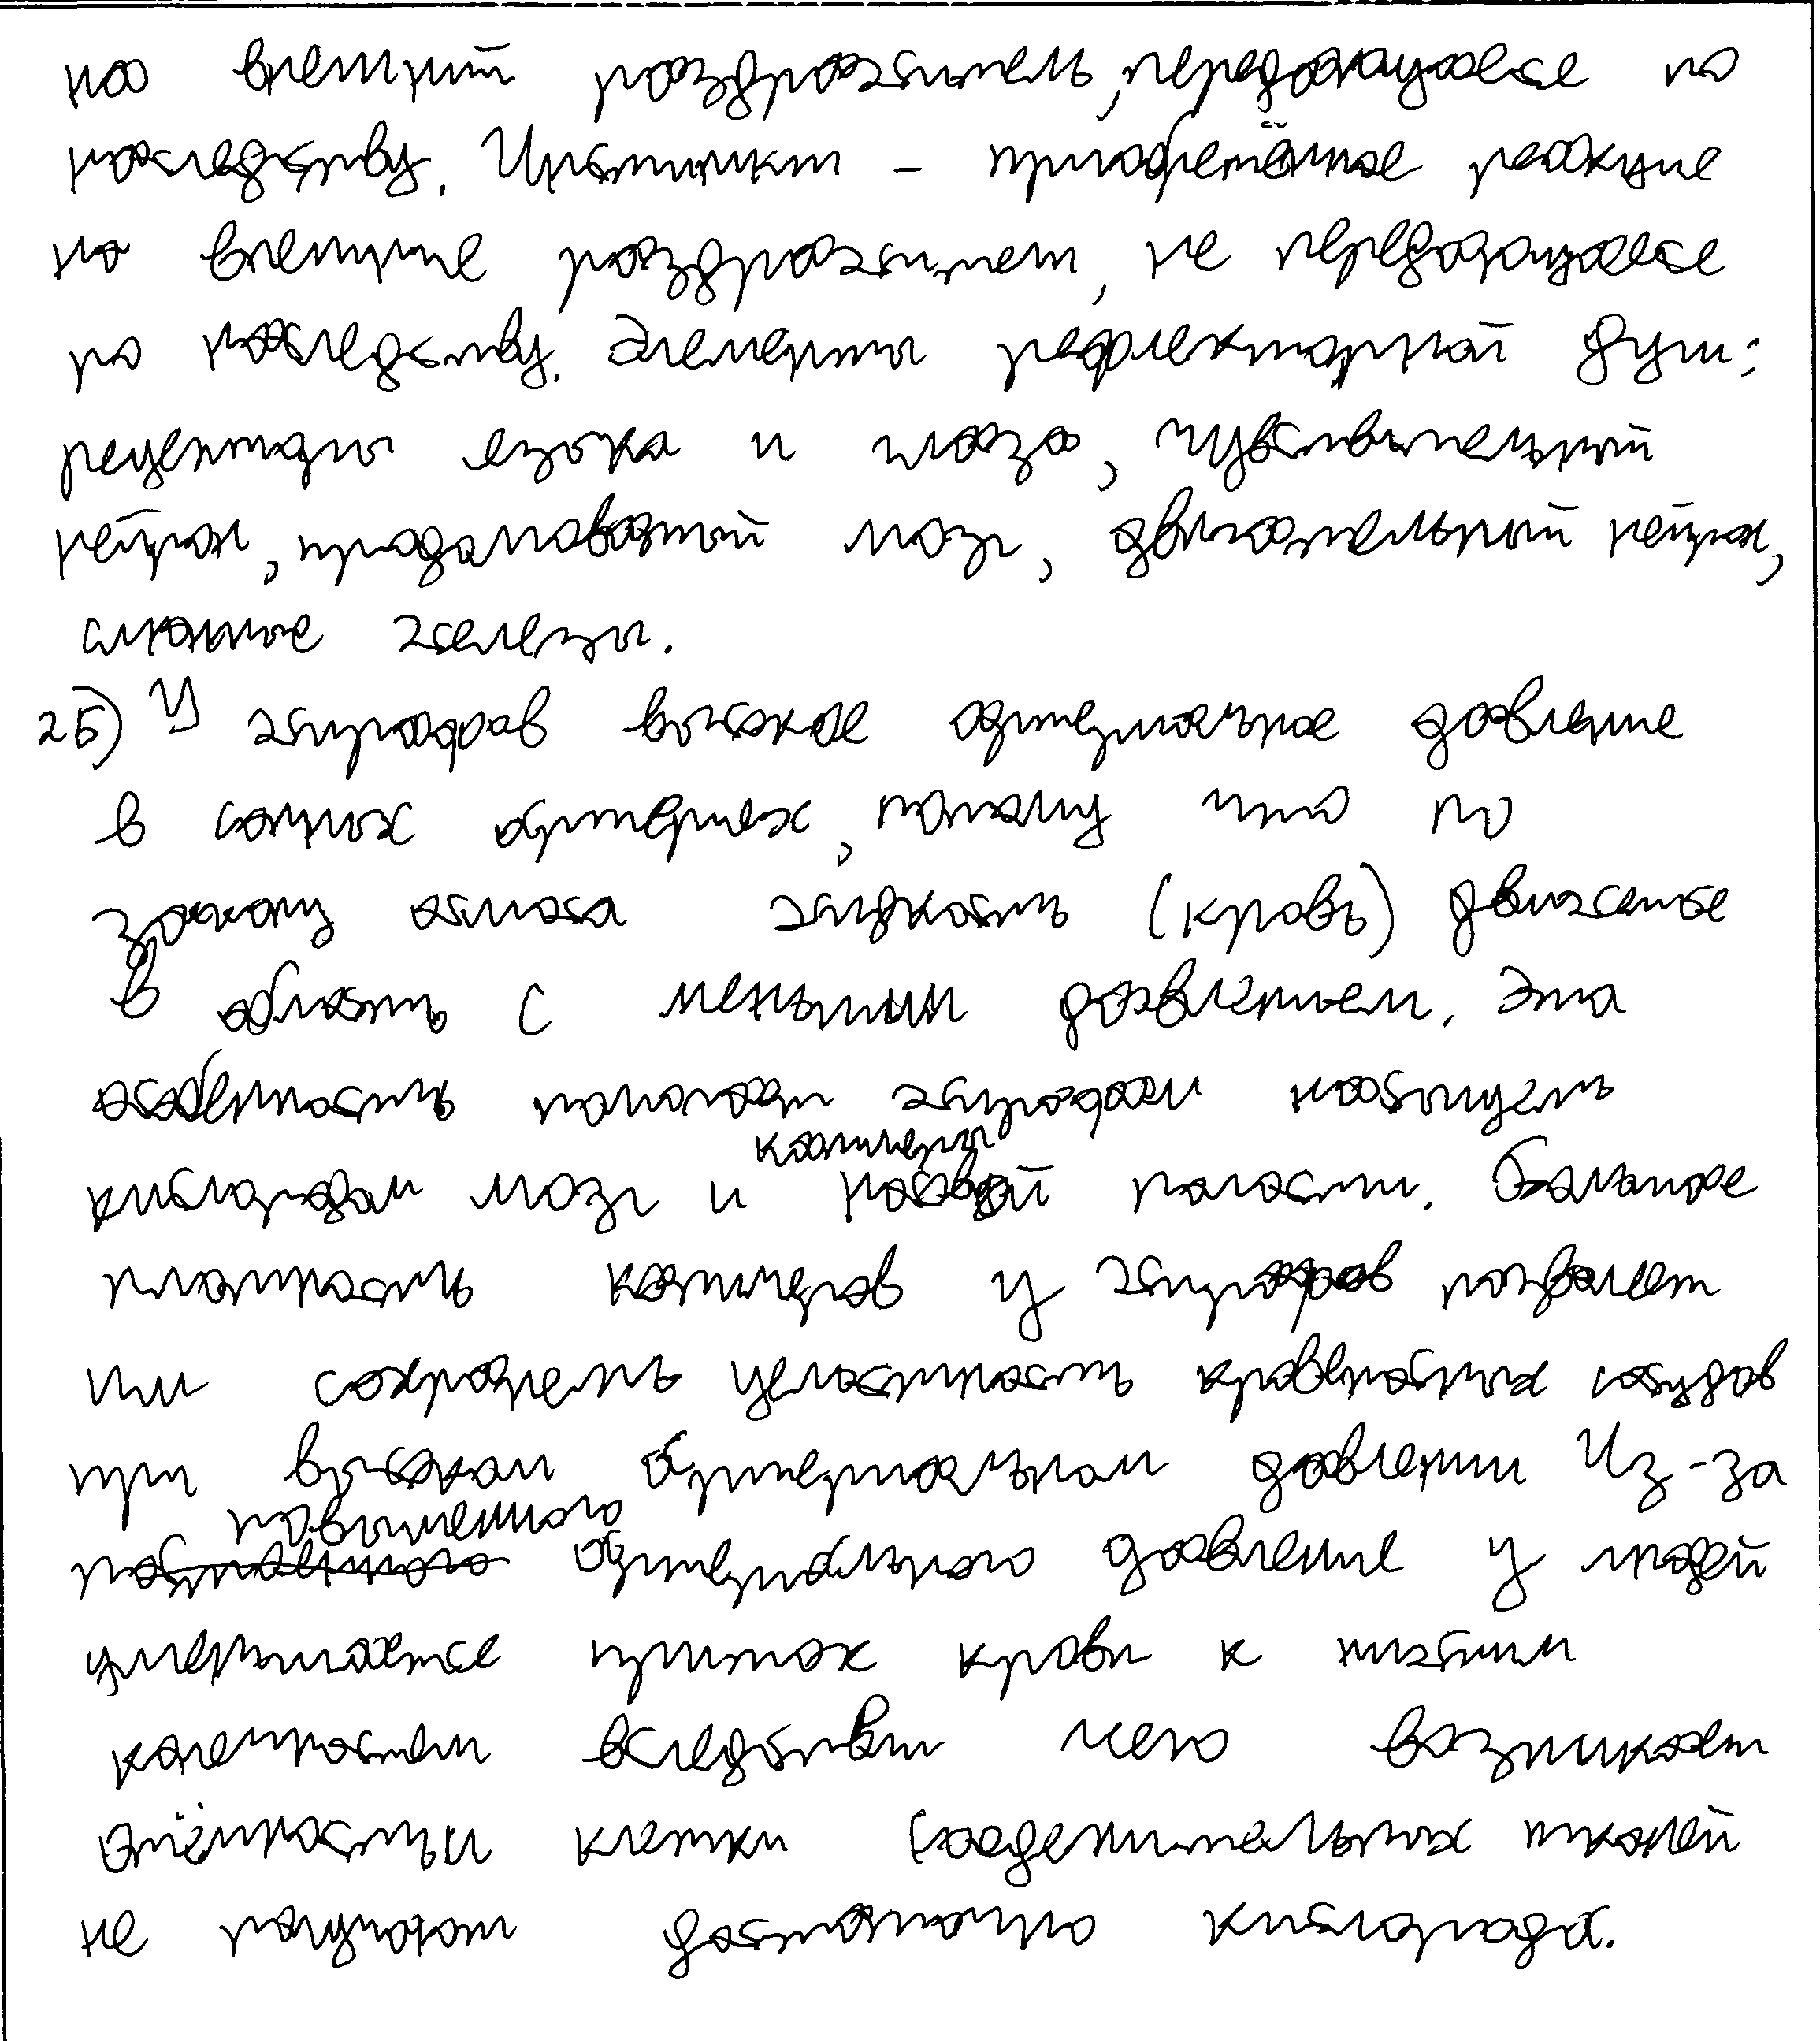 на внешний раздражитель, передающаяся по
наследству. Инстинкт - приобретённая реакция
на внешние раздражители, не передающаяся
по наследству. Элементы рефлекторной дуги:
рецепторы языка и глаза, чувствительный
нейрон, продолговатый мозг, двигательный нейрон,
слюнные железы.
25) У жирафов высокое артериальное давление
в сонных артериях, потому что по
закону осмоса жидкость (кровь) движется
в область с меньшим давлением. Эта
особенность помогает жирафам насыщать
капилляры
кислородом мозг и носовой полости. Большая
плотность капилляров у жирафов позволяет
им сохранять целостность кровеносных сосудов
при высоком артериальном давлении Из-за
повышенного
артериального давление у людей
уменьшается приток крови к нижним
конечностям вследствии чего возникает
отёчность и клетки соединительных тканей
не получают достаточно кислорода.